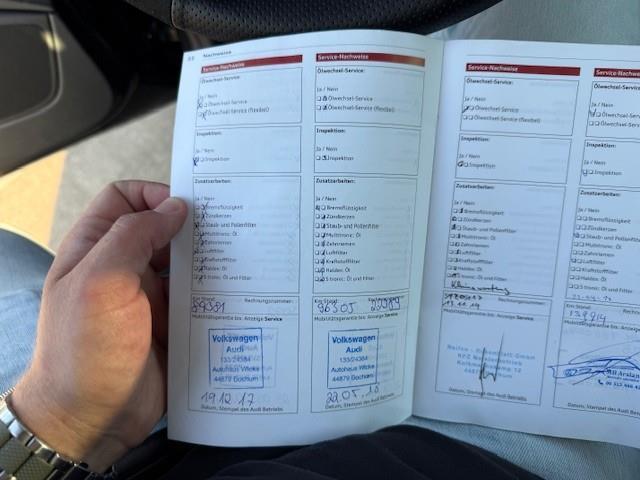 Nachweise
Service-Nachweise
Ölwechsel-Service:
Ja / Nein
Ölwechsel-Service
Ölwechsel-Service (flexibel)
Inspektion:
Ja / Nein
Inspektion
Zusatzarbeiten:
Ja / Nein
Bremsflüssigkeit
Zündkerzen
Staub- und Pollenfilter
Multitronic: Öl
Zahnriemen
Luftfilter
Kraftstofffilter
Haldex: Öl
S tronic: Öl und Filter
Km-Stand:
Rechnungsnummer:
Mobilitätsgarantie bis: Anzeige Service
Volkswagen
Audi
133/24384
Autohaus Wicke
44879 Bochum
19.12.17
Datum, Stempel des Audi Betriebs
Service-Nachweise
Ölwechsel-Service:
Ja / Nein
Ölwechsel-Service
Ölwechsel-Service (flexibel)
Inspektion:
Ja / Nein
Inspektion
Zusatzarbeiten:
Ja / Nein
Bremsflüssigkeit
Zündkerzen
Staub- und Pollenfilter
Multitronic: Öl
Zahnriemen
Luftfilter
Kraftstofffilter
Haldex: Öl
S tronic: Öl und Filter
Km-Stand:
96305
Mobilitätsgarantie bis: Anzeige Service
Volkswagen
Audi
133/24384
Autohaus Wicke
44879 Bochum
Datum, Stempel des Audi Betriebs
Service-Nachweise
Ölwechsel-Service:
Ja / Nein
Ölwechsel-Service
Ölwechsel-Service (flexibel)
Inspektion:
Ja / Nein
Inspektion
Zusatzarbeiten:
Ja / Nein
Bremsflüssigkeit
Zündkerzen
Staub- und Pollenfilter
Multitronic: Öl
Zahnriemen
Luftfilter
Kraftstofffilter
Haldex: Öl
S tronic: Öl und Filter
Rechnungsnummer:
Mobilitätsgarantie bis: Anzeige Service
GmbH
Datum, Stempel des Audi Betriebs
Service-Nachweise
Ölwechsel-Service:
Ja / Nein
Inspektion:
Ja / Nein
Inspektion
Zusatzarbeiten:
Ja / Nein
Bremsflüssigkeit
Zündkerzen
Staub- und Pollenfilter
Multitronic: Öl
Zahnriemen
Luftfilter
Kraftstofffilter
Haldex: Öl
S tronic: Öl und Filter
Km-Stand:
Mobilitätsgarantie bis:
Arslan
Datum, Stempel des Audi